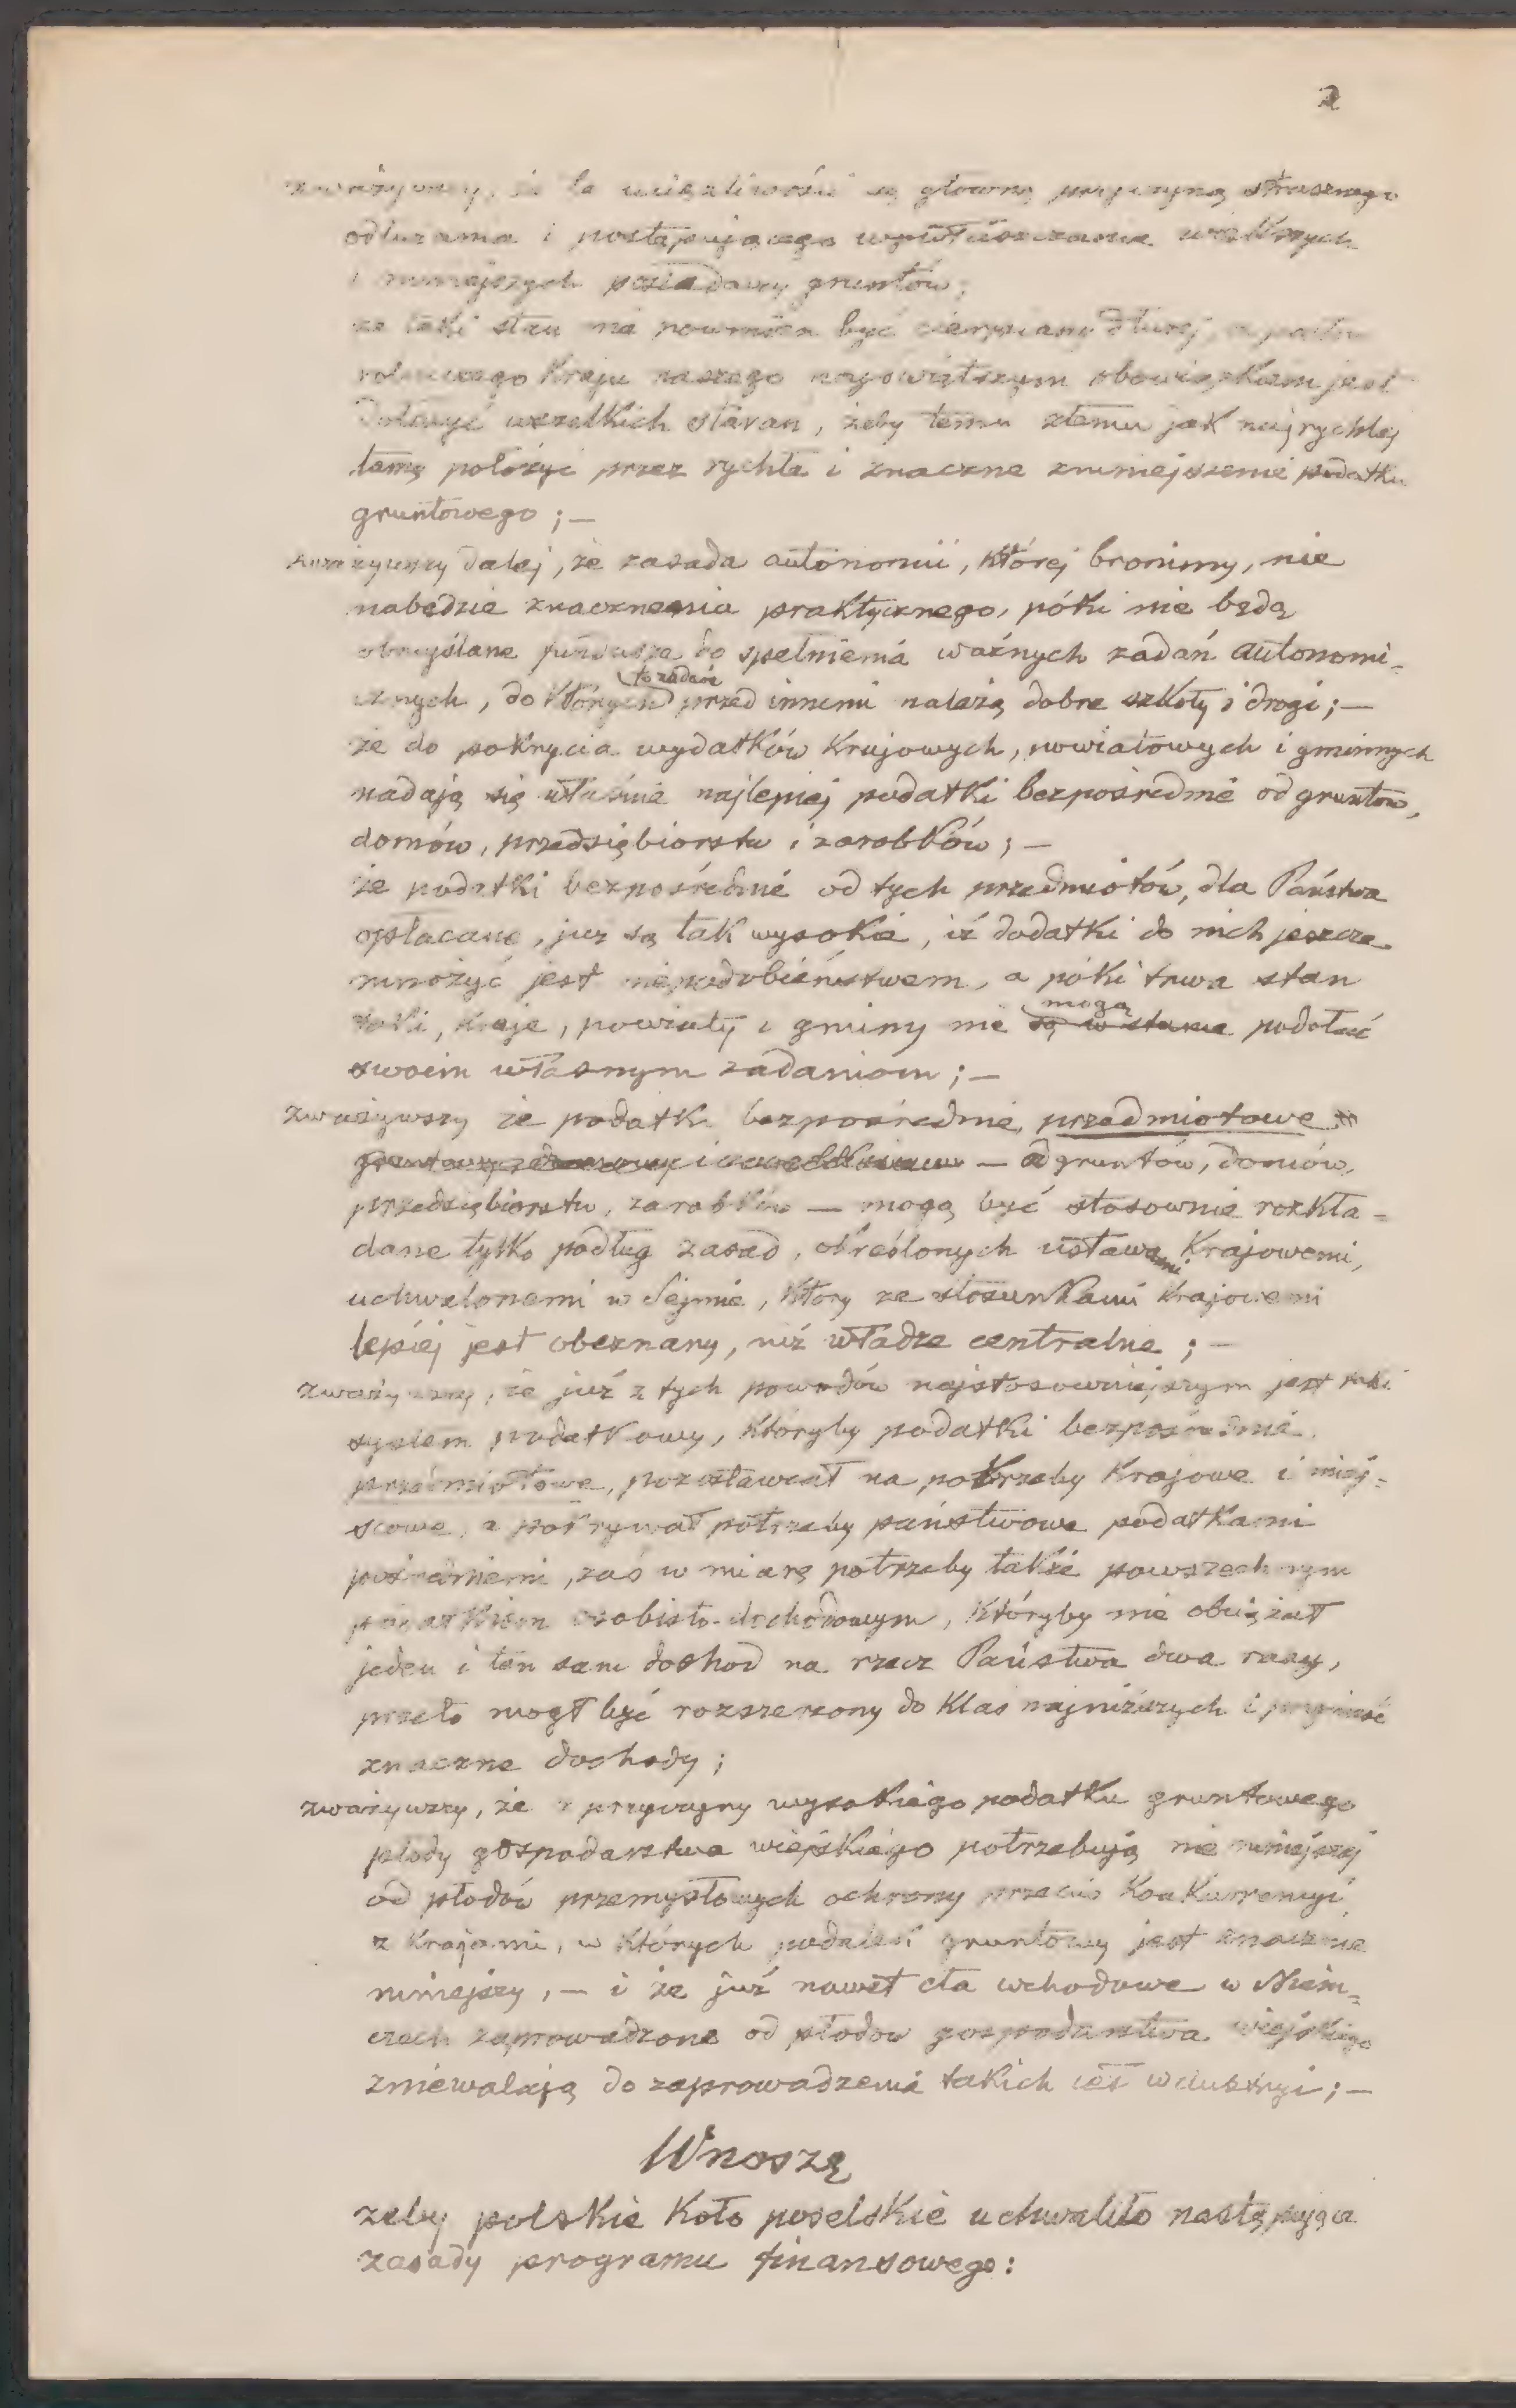 2
zważywszy, że te uciążliwości są główną przyczyną strasznego
odłużania i postępującego wywłaszczania większych
i mniejszych posiadaczy gruntów;
że taki stan nie powinien być cierpiany dłużej, a
rolniczego Kraju naszego najświętszym obowiązkiem jest
dołożyć wszelkich staran, żeby temu złemu jak najrychlej
tamę położyć przez rychłe i znaczne zmniejszenie podatku
gruntowego; —
zważywszy dalej, że zasada autonomii, której bronimy, nie
nabędzie znaczenia praktycznego, póki nie będą
obmyślane fundusze do spełnienia ważnych zadań autonomi-
cznych, do których to zadań przed innemi należą dobre szkoły i drogi; —
że do pokrycia wydatków Krajowych, powiatowych i gminnych
nadają się właśnie najlepiej podatki bezpośrednie od gruntów,
domów, przedsiębiorstw i zarobków; —
że podatki bezpośrednie od tych przedmiotów, dla Państwa
opłacane, już są tak wysokie, iż dodatki do nich jeszcze
mnożyć jest niepodobieństwem, a póki trwa stan
taki, kraje, powiaty i gminy nie mogą są w stanie podołać
swoim własnym zadaniom; —
zważywszy że podatki bezpośrednie, przedmiotowe
— od gruntów, domów,
przedsiębiorstw, zarobków — mogą być stosownie rozkła-
dane tylko podług zasad, określonych ustawami Krajowemi,
uchwalonemi w Sejmie, który ze stosunkami Krajowemi
lepiej jest obeznany, niż władze centralne; —
zważywszy, że już z tych powodów najstosowniejszym jest taki
system podatkowy, któryby podatki bezpośrednie,
przedmiotowe, pozostawiał na potrzeby Krajowe i miej-
scowe, a pokrywał potrzeby państwowe podatkami
pośredniemi, zaś w miarę potrzeby także powszechnym
podatkiem osobisto-dochodowym, któryby nie obciążał
jeden i ten sam dochod na rzecz Państwa dwa razy,
przeto mogł być rozszerzony do Klas najniższych i przynieść
znaczne dochody;
zważywszy, że z przyczyny wysokiego podatku gruntowego
płody gospodarstwa wiejskiego potrzebują nie mniejszej
od płodów przemysłowych ochrony przeciw Konkurencyi
z Krajami, w których podatek gruntowy jest znacznie
mniejszy, — i że już nawet cła wchodowe w Niem-
czech zaprowadzone od płodów gospodarstwa wiejskiego
zniewalają do zaprowadzenia takich ceł w Austryi; —
Wnoszę
żeby polskie Koło poselskie uchwaliło następujące
zasady programu finansowego: